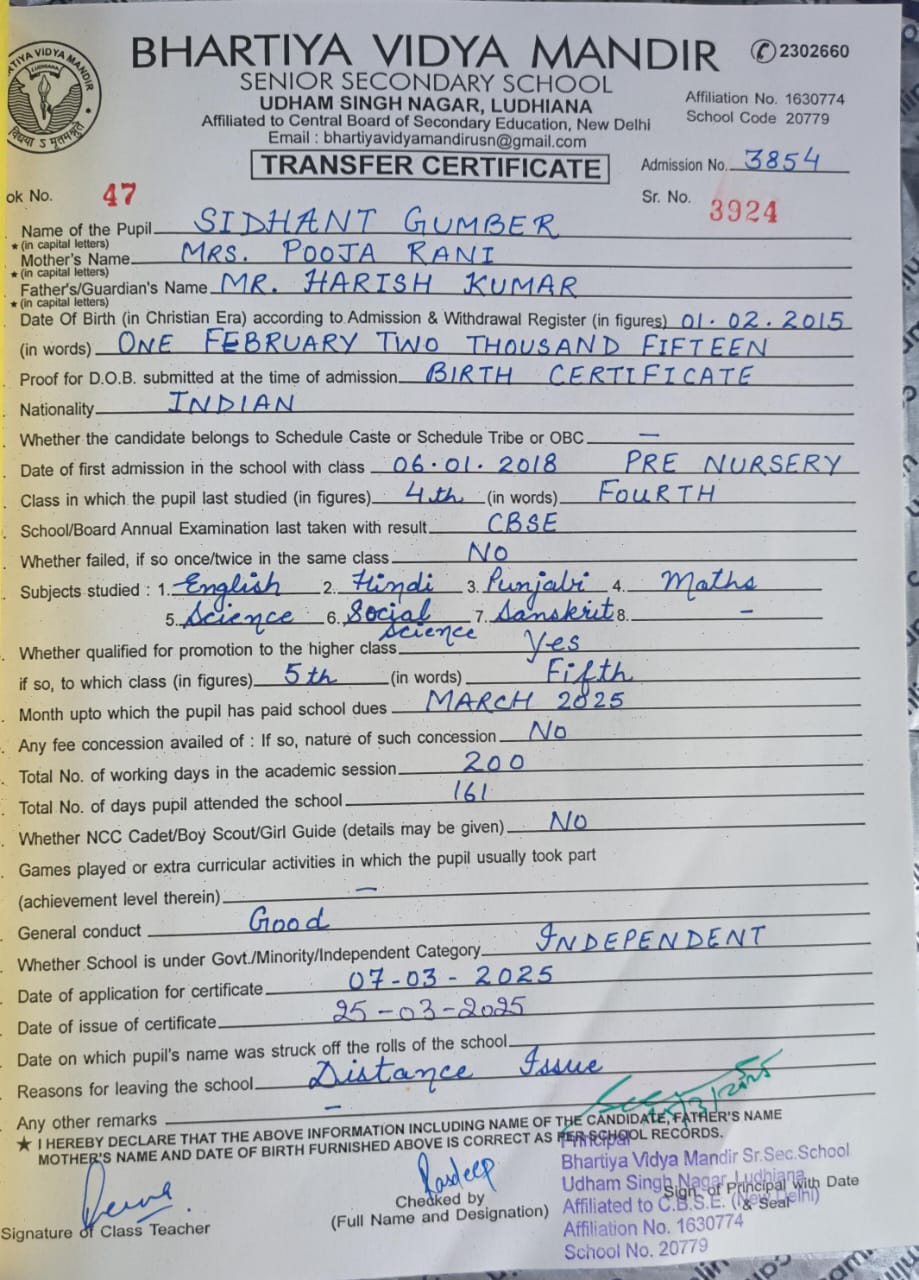 BHARTIYA VIDYA MANDIR
2302660
SENIOR SECONDARY SCHOOL
UDHAM SINGH NAGAR, LUDHIANA
Affiliation No. 1630774
Affiliated to Central Board of Secondary Education, New Delhi
School Code 20779
Email : bhartiyavidyamandirusn@gmail.com
TRANSFER CERTIFICATE
Admission No. 3854
ok No. 47
Sr. No. 3924
Name of the Pupil SIDHANT GUMBER
★ (in capital letters)
Mother's Name MRS. POOJA RANI
★ (in capital letters)
Father's/Guardian's Name MR. HARISH KUMAR
★ (in capital letters)
Date Of Birth (in Christian Era) according to Admission & Withdrawal Register (in figures) 01.02.2015
(in words) ONE FEBRUARY TWO THOUSAND FIFTEEN
Proof for D.O.B. submitted at the time of admission BIRTH CERTIFICATE
Nationality INDIAN
Whether the candidate belongs to Schedule Caste or Schedule Tribe or OBC —
Date of first admission in the school with class 06.01.2018 PRE NURSERY
Class in which the pupil last studied (in figures) 4th (in words) FOURTH
School/Board Annual Examination last taken with result CBSE
Whether failed, if so once/twice in the same class NO
Subjects studied : 1. English 2. Hindi 3. Punjabi 4. Maths
5. Science 6. Social Science 7. Sanskrit 8. -
Whether qualified for promotion to the higher class Yes
if so, to which class (in figures) 5th (in words) Fifth
Month upto which the pupil has paid school dues MARCH 2025
Any fee concession availed of : If so, nature of such concession No
Total No. of working days in the academic session 200
Total No. of days pupil attended the school 161
Whether NCC Cadet/Boy Scout/Girl Guide (details may be given) No
Games played or extra curricular activities in which the pupil usually took part
(achievement level therein) —
General conduct Good
Whether School is under Govt./Minority/Independent Category INDEPENDENT
Date of application for certificate 07-03-2025
Date of issue of certificate 25-03-2025
Date on which pupil's name was struck off the rolls of the school
Reasons for leaving the school Distance Issue
Any other remarks —
★ I HEREBY DECLARE THAT THE ABOVE INFORMATION INCLUDING NAME OF THE CANDIDATE, FATHER'S NAME
MOTHER'S NAME AND DATE OF BIRTH FURNISHED ABOVE IS CORRECT AS PER SCHOOL RECORDS.
Principal
Bhartiya Vidya Mandir Sr.Sec.School
Udham Singh Nagar, Ludhiana
Sign. of Principal with Date
& Seal
Affiliated to C.B.S.E. (New Delhi)
Affiliation No. 1630774
School No. 20779
Checked by
(Full Name and Designation)
Signature of Class Teacher